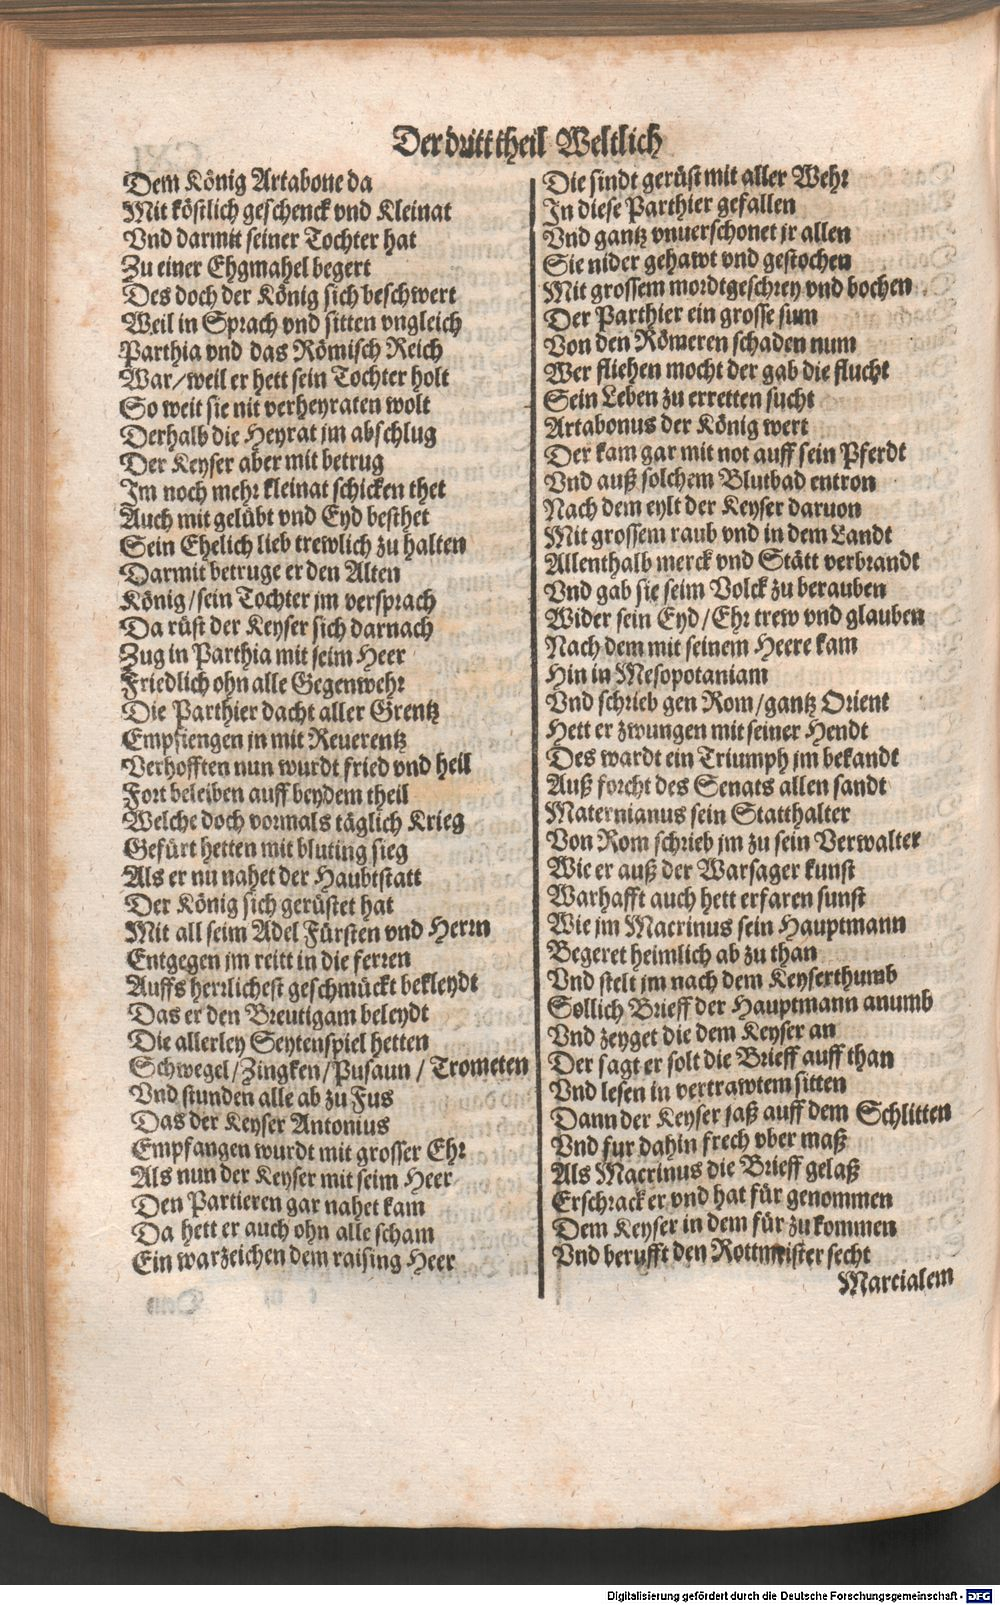 Der dritt theil Weltlich
Dem König Artabone da
Mit köstlich geschenck vnd Kleinat
Vnd darmit seiner Tochter hat
Zu einer Ehgmahel begert
Des doch der König sich beschwert
Weil in Sprach vnd sitten vngleich
Parthia vnd das Römisch Reich
War/weil er hett sein Tochter holt
So weit sie nit verheyraten wolt
Derhalb die Heyrat jm abschlug
Der Keyser aber mit betrug
Im noch mehr kleinat schicken thet
Auch mit gelübt vnd Eyd besthet
Sein Ehelich lieb trewlich zu halten
Darmit betruge er den Alten
König/sein Tochter jm versprach
Da rüst der Keyser sich darnach
Zug in Parthia mit seim Heer
Friedlich ohn alle Gegenwehr
Die Parthier dacht aller Grentz
Empfiengen jn mit Reuerentz
Verhofften nun wurdt fried vnd heil
Fort beleiben auff beydem theil
Welche doch vormals täglich Krieg
Gefürt hetten mit bluting sieg
Als er nu nahet der Haubtstatt
Der König sich gerüstet hat
Mit all seim Adel Fürsten vnd Herrn
Entgegen jm reitt in die ferren
Auffs herrlichest geschmückt bekleydt
Das er den Breutigam beleydt
Die allerley Seytenspiel hetten
Schwegel/Zingken/Pusaun/Trometen
Vnd stunden alle ab zu Fus
Das der Keyser Antonius
Empfangen wurdt mit grosser Ehr
Als nun der Keyser mit seim Heer
Den Partieren gar nahet kam
Da hett er auch ohn alle scham
Ein warzeichen dem raising Heer
Die sindt gerüst mit aller Wehr
In diese Parthier gefallen
Vnd gantz vnuerschonet jr allen
Sie nider gehawt vnd gestochen
Mit grossem mordtgeschrey vnd bochen
Der Parthier ein grosse sum
Von den Römeren schaden num
Wer fliehen mocht der gab die flucht
Sein Leben zu erretten sucht
Artabonus der König wert
Der kam gar mit not auff sein Pferdt
Vnd auß solchem Blutbad entron
Nach dem eylt der Keyser daruon
Mit grossem raub vnd in dem Landt
Allenthalb merck vnd Stätt verbrandt
Vnd gab sie seim Volck zu berauben
Wider sein Eyd/Ehr trew vnd glauben
Nach dem mit seinem Heere kam
Hin in Mesopotaniam
Vnd schrieb gen Rom/gantz Orient
Hett er zwungen mit seiner Hendt
Des wardt ein Triumph jm bekandt
Auß forcht des Senats allen sandt
Maternianus sein Statthalter
Von Rom schrieb jm zu sein Verwalter
Wie er auß der Warsager kunst
Warhafft auch hett erfaren sunst
Wie jm Macrinus sein Hauptmann
Begeret heimlich ab zu than
Vnd stelt jm nach dem Keyserthumb
Sollich Brieff der Hauptmann anumb
Vnd zeyget die dem Keyser an
Der sagt er solt die Brieff auff than
Vnd lesen in vertrawtem sitten
Dann der Keyser saß auff dem Schlitten
Vnd fur dahin frech vber maß
Als Macrinus die Brieff gelaß
Erschrack er vnd hat für genommen
Dem Keyser in dem für zu kommen
Vnd berufft den Rottmeister secht
Marcialem
Digitalisierung gefördert durch die Deutsche Forschungsgemeinschaft - DFG